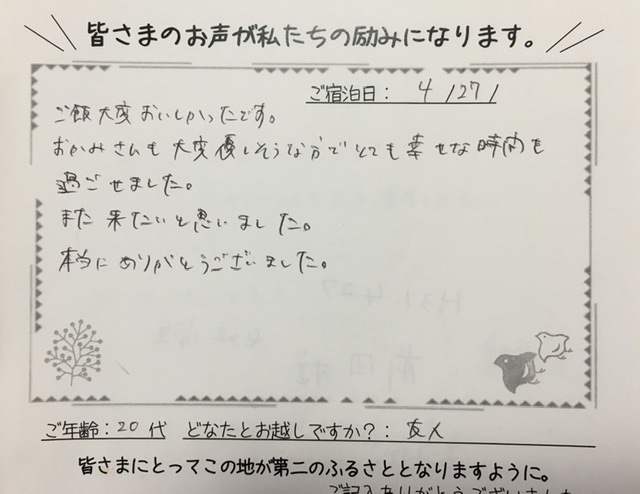 皆さまのお声が私たちの励みになります。
ご宿泊日: 4/27/
ご飯大変おいしかったです。
おかみさんも大変優しそうな方でとても幸せな時間を
過ごせました。
また来たいと思いました。
本当にありがとうございました。
ご年齢:20代 どなたとお越しですか?: 友人
皆さまにとってこの地が第二のふるさととなりますように。
ご記入ありがとうございました